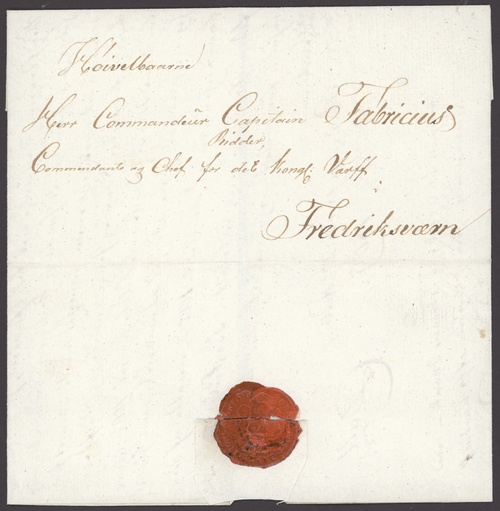 Höivelbaarne
Herr Commandeür Capitain Fabricius
Ridder,
Commandante og Chef for det Kongl: Værff
Fredriksværn